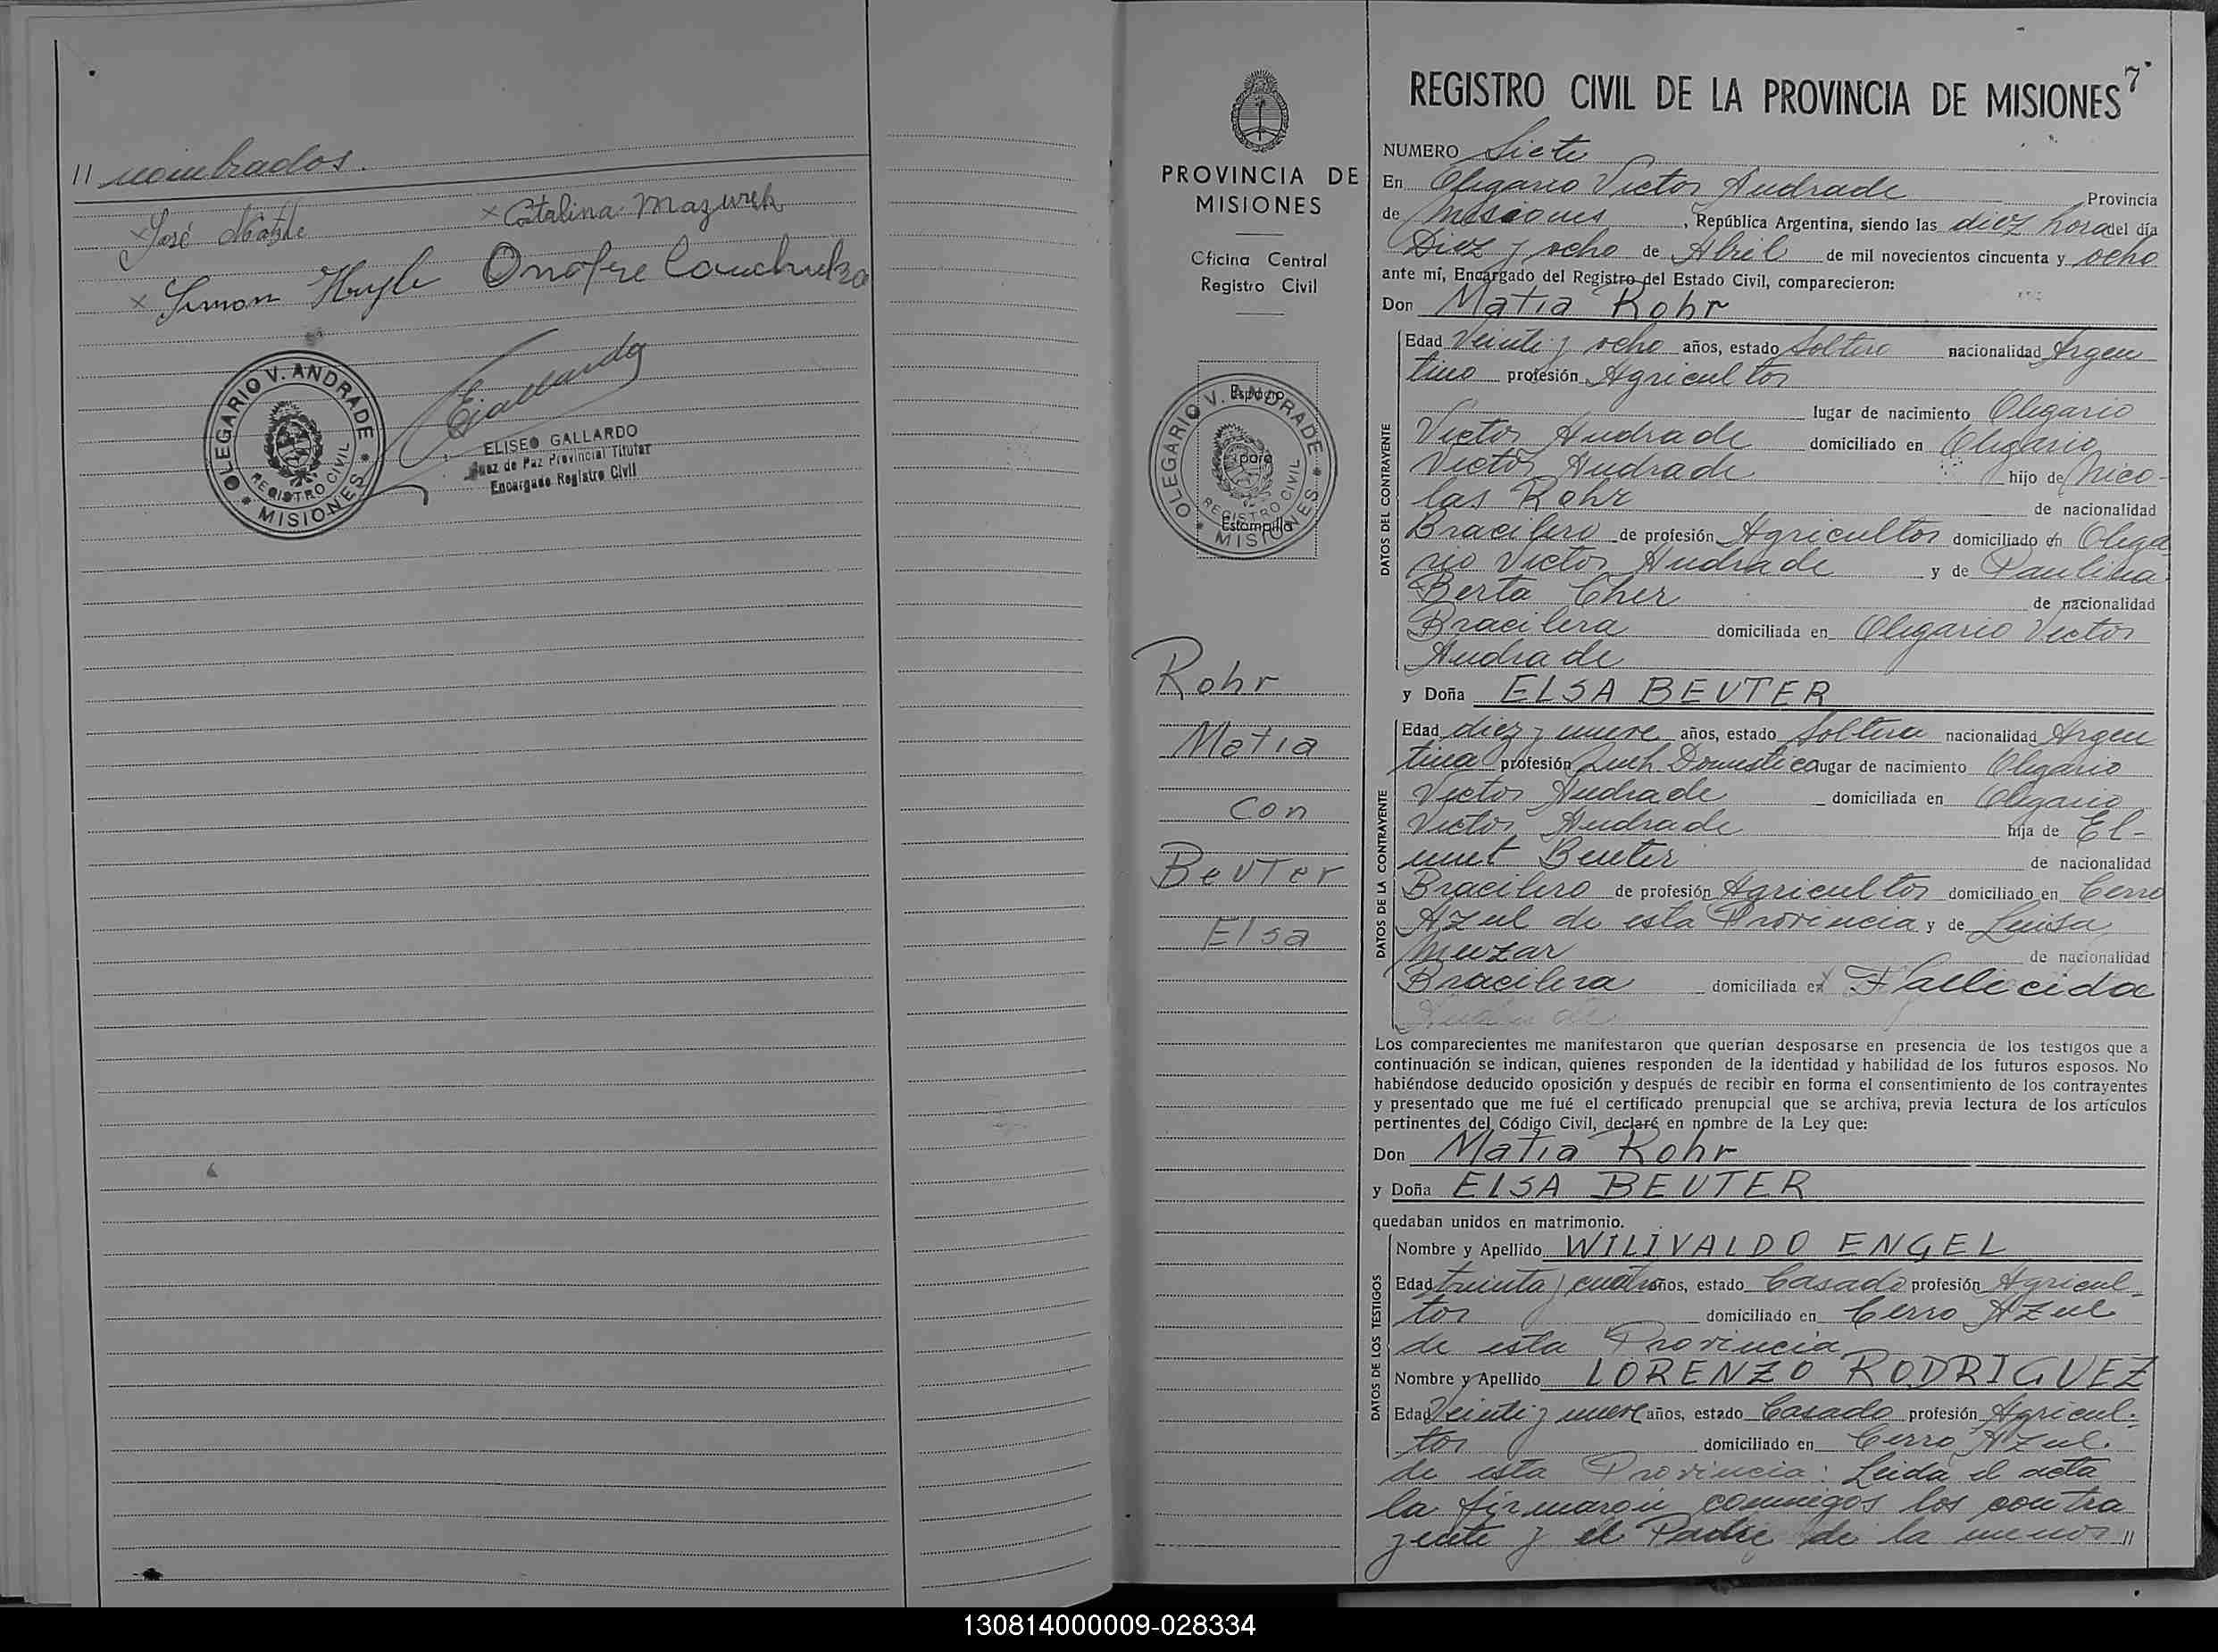 // nombrados.
x José x Catalina Mazurek
x Simon Onofre
OLEGARIO V. ANDRADE
REGISTRO CIVIL
* MISIONES *
EGallardo
ELISEO GALLARDO
Juez de Paz Provincial Titular
Encargado Registro Civil
PROVINCIA DE
MISIONES
Oficina Central
Registro Civil
Espacio
para
Estampilla
OLEGARIO V. ANDRADE
REGISTRO CIVIL
* MISIONES *
Rohr
Matia
con
Beuter
Elsa
7
REGISTRO CIVIL DE LA PROVINCIA DE MISIONES
NUMERO Siete
En Olegario Victor Andrade Provincia
de Misiones, República Argentina, siendo las diez horas del día
Diez y ocho de Abril de mil novecientos cincuenta y ocho
ante mí, Encargado del Registro del Estado Civil, comparecieron:
Don Matia Rohr
DATOS DEL CONTRAYENTE
Edad Veinte y ocho años, estado Soltero nacionalidad Argen
tino profesión Agricultor
lugar de nacimiento Olegario
Victor Andrade domiciliado en Olegario
Victor Andrade hijo de Nico-
las Rohr de nacionalidad
Bracilero de profesión Agricultor domiciliado en Olega
rio Victor Andrade y de Paulina
Berta Cher de nacionalidad
Bracilera domiciliada en Olegario Victor
Andrade
y Doña ELSA BEUTER
DATOS DE LA CONTRAYENTE
Edad diez y nueve años, estado Soltera nacionalidad Argen
tina profesión Domestica lugar de nacimiento Olegario
Victor Andrade domiciliada en Olegario
Victor Andrade hija de El-
mut Beuter de nacionalidad
Bracilero de profesión Agricultor domiciliado en Cerro
Azul de esta Provincia y de Luisa
Muzar de nacionalidad
Bracilera domiciliada en Fallecida
Andrade
Los comparecientes me manifestaron que querían desposarse en presencia de los testigos que a
continuación se indican, quienes responden de la identidad y habilidad de los futuros esposos. No
habiéndose deducido oposición y después de recibir en forma el consentimiento de los contrayentes
y presentado que me fué el certificado prenupcial que se archiva, previa lectura de los artículos
pertinentes del Código Civil, declaré en nombre de la Ley que:
Don Matia Rohr
y Doña ELSA BEUTER
quedaban unidos en matrimonio.
DATOS DE LOS TESTIGOS
Nombre y Apellido WILIVALDO ENGEL
Edad treinta y cuatro años, estado Casado profesión Agricul-
tor domiciliado en Cerro Azul
de esta Provincia
Nombre y Apellido LORENZO RODRIGUEZ
Edad Veinte y nueve años, estado Casado profesión Agricul-
tor domiciliado en Cerro Azul.
de esta Provincia: Leida el acta
la firmaron conmigos los contra
yente y el Padre de la menor //
130814000009-028334